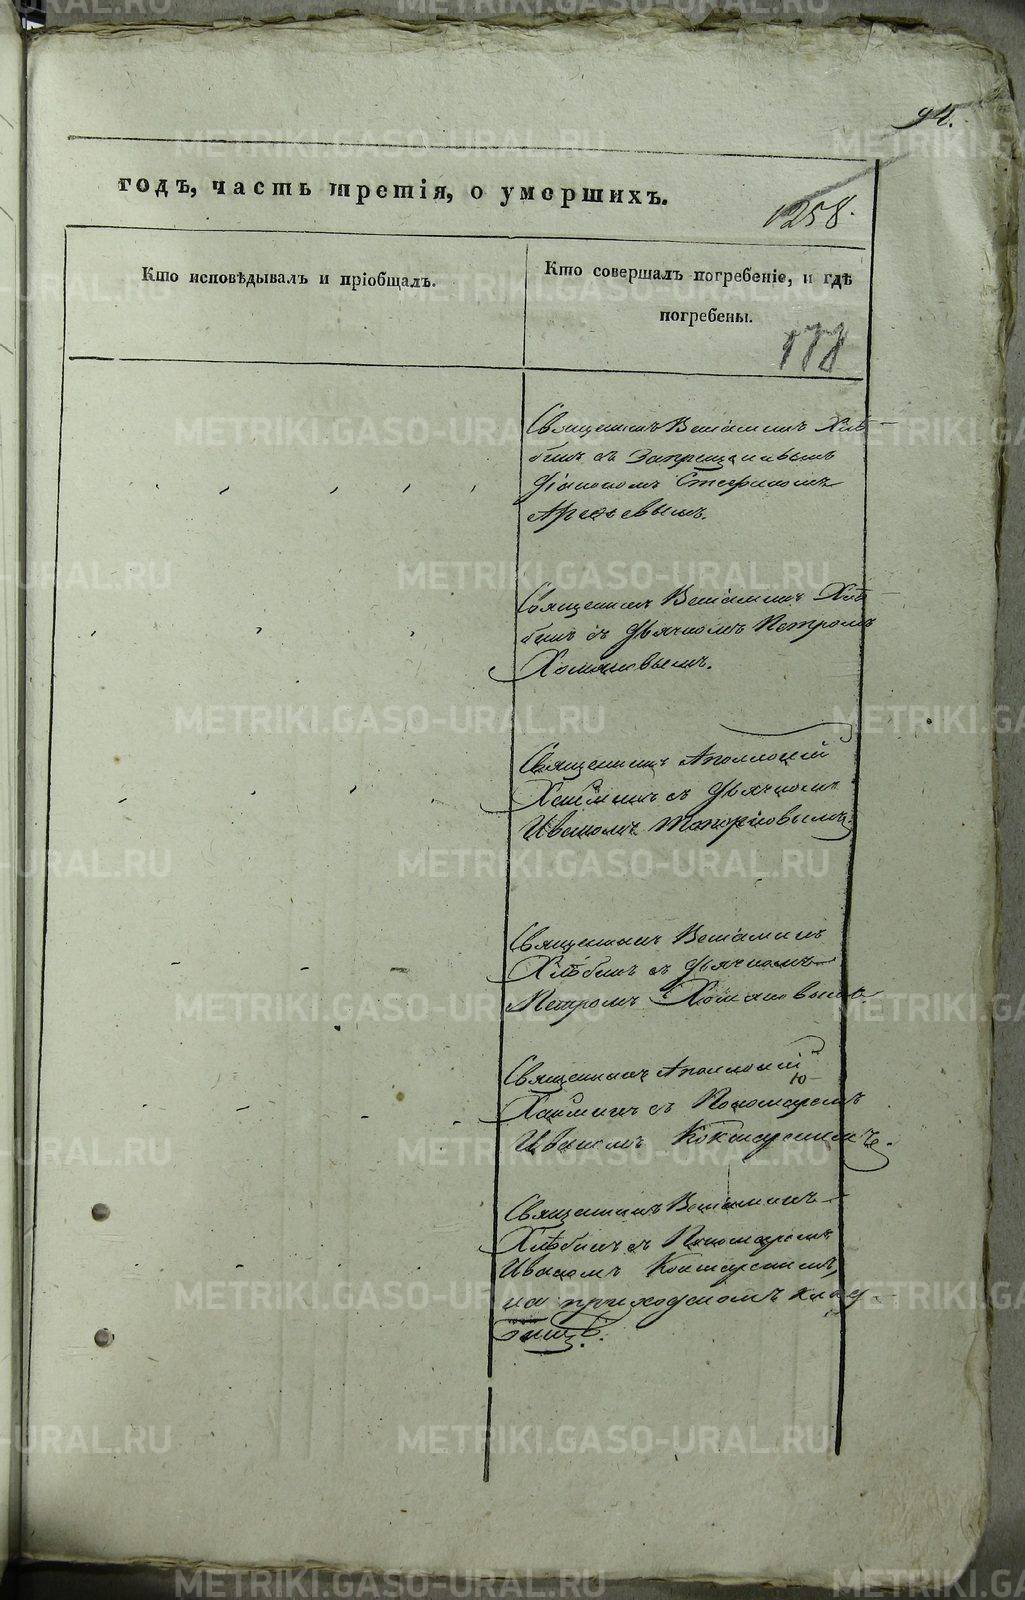 94.
годъ, часть третія, о умершихъ.
1258.
Кто исповѣдывалъ и пріобщалъ.
Кто совершалъ погребеніе, и гдѣ
погребены.
178
Священникъ Веніаминъ Хлѣ-
бинъ съ Запрещеннымъ
Діакономъ Стефаномъ
Священникъ Веніаминъ Хлѣ-
бинъ съ Дьячкомъ Петромъ
Хомяковымъ.
Священникъ Аполлоній
съ Дьячкомъ
Иваномъ Топорковымъ.
Священникъ Веніаминъ
Хлѣбинъ съ Дьячкомъ
Петромъ Хомяковымъ
Священникъ Аполлоній
съ Пономаремъ
Иваномъ Кокшарскимъ.
Священникъ Веніаминъ
Хлѣбинъ съ Пономаремъ
Иваномъ Кокшарскимъ,
на приходскомъ клад-
бищѣ.
METRIKI.GASO-URAL.RU